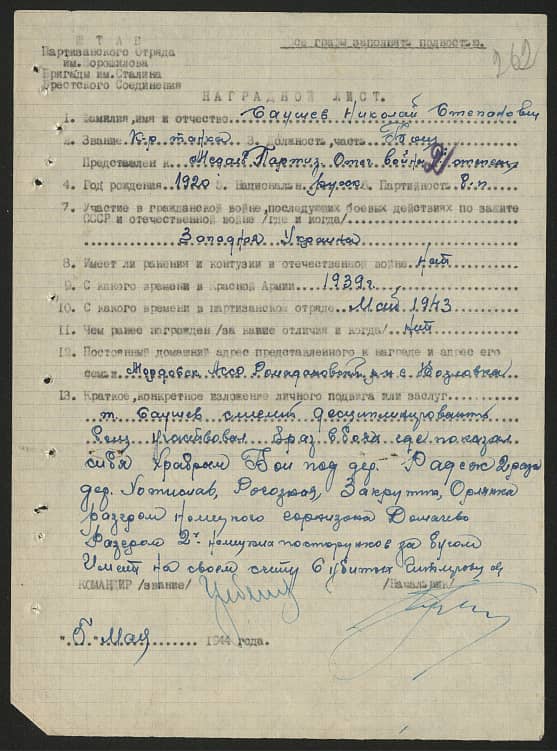 ШТАБ
Партизанского Отряда
им. Ворошилова
Бригады им. Сталина
Брестского Соединения
Все графы заполнять полностью.
262
НАГРАДНОЙ ЛИСТ.
1. Фамилия, имя и отчество Баушев Николай Степанович
2. Звание К-р танка 3. Должность, часть
Представлен к Медаль Партиз. Отеч. войны
4. Год рождения 1920 5. Национальн. русск 6. Партийность б.п
7. Участие в гражданской войне, последующих боевых действиях по защите
СССР и отечественной войне /где и когда/
Западная Украина
8. Имеет ли ранения и контузии в отечественной войне Нет
9. С какого времени в Красной Армии 1939 г.
10. С какого времени в партизанском отряде Май 1943
11. Чем ранее награжден /за какие отличия и когда/ Нет
12. Постоянный домашний адрес представленного к награде и адрес его
семьи Мордовск. АССР Ромодановский с. Козловка
13. Краткое, конкретное изложение личного подвига или заслуг
т. Баушев смелый
участвовал раз в боях где показал
себя храбрым Бои под дер. Радеж 2 раза
дер. Хотислав, Рогозная, Закрутта, Орлянка
разгром немецкого гарнизона Домачево
Разгром 2х немецких за Бугом
Имеет на своем счету 6 убитых
КОМАНДИР /звание/ /Начальник/
"5" Мая 1944 года.